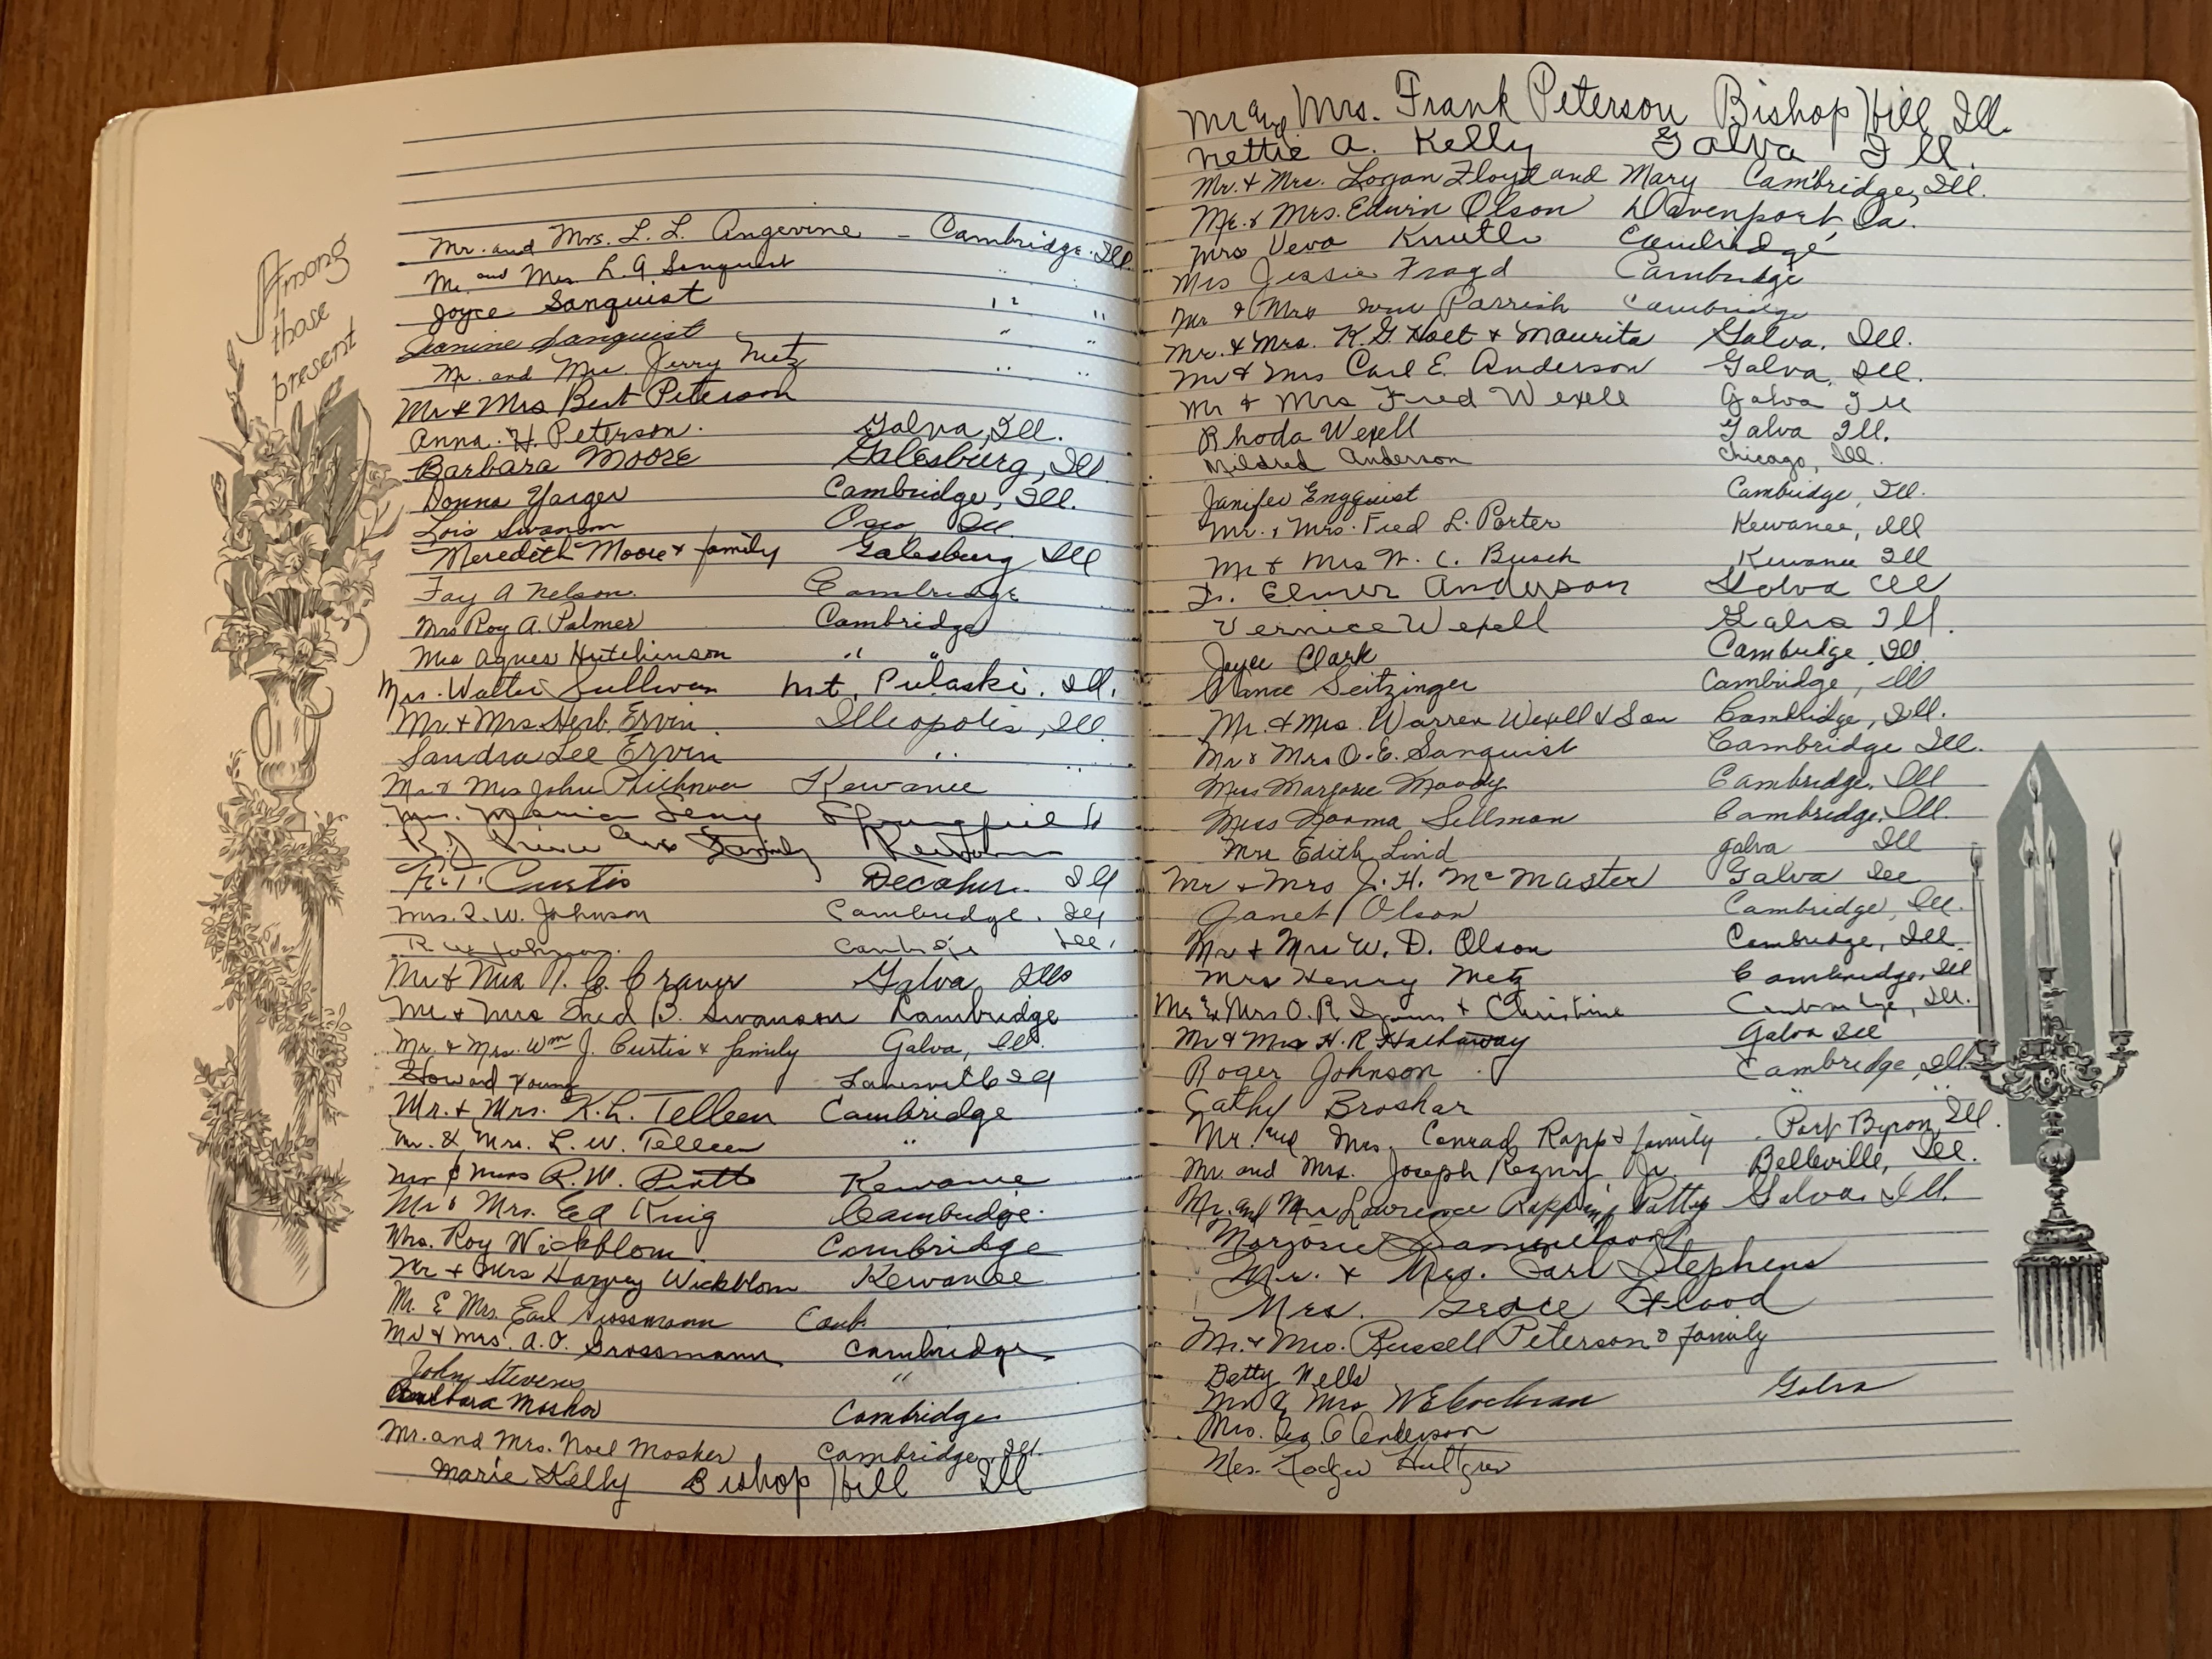 Among
those
present
Mr. and Mrs. L. L. Angevine - Cambridge. Ill.
Mr. and Mrs. L. A Sanquist " "
Joyce Sanquist " "
Jeanine Sanquist " "
Mr. and Mrs. Jerry Metz " "
Mr & Mrs Bert Peterson
Anna. H. Peterson. Galva, Ill.
Barbara Moore Galesburg, Ill
Donna Yarger Cambridge, Ill.
Lois Swanson Ill.
Meredith Moore & family Galesburg Ill
Fay A Nelson. Cambridge
Mrs Roy A. Palmer Cambridge
Mrs Agnes Hutchinson " "
Mrs. Walter Sullivan Mt. Pulaski. Ill.
Mr. & Mrs. Herb Ervin Illiopolis, Ill.
Sandra Lee Ervin " "
Mr & Mrs John Kewanee
Mrs. Maria Springfield
and Family
R. T. Curtis Decatur Ill
Mrs. R. W. Johnson Cambridge. Ill
R W Johnson. Cambridge Ill.
Mr & Mrs Craver Galva, Ills
Mr & Mrs Fred B. Swanson Cambridge
Mr. & Mrs. Wm J. Curtis & family Galva, Ill.
Howard Young Lanesville Ill
Mr. & Mrs. K. L. Telleen Cambridge
Mr. & Mrs. L. W. Telleen "
Mr & Mrs R. W. Piatt Kewanee
Mr & Mrs. Ed King Cambridge.
Mrs. Roy Wickblom Cambridge
Mr & Mrs Harvey Wickblom Kewanee
Mr. & Mrs. Earl Grossmann Camb.
Mr & Mrs. A. O. Grossmann Cambridge
John Stevens "
Barbara Mosher Cambridge
Mr. and Mrs. Noel Mosher Cambridge, Ill.
Marie Kelly Bishop Hill Ill
Mr and Mrs. Frank Peterson Bishop Hill Ill.
Nettie A. Kelly Galva Ill.
Mr. & Mrs. Logan Floyd and Mary Cambridge, Ill.
Mr. & Mrs. Edwin Olson Davenport, Ia.
Mrs Veva Cambridge
Mrs Jessie Cambridge
Mr & Mrs Wm Parrish Cambridge
Mr. & Mrs. K. G. Hoet & Maurita Galva, Ill.
Mr & Mrs Carl E. Anderson Galva, Ill.
Mr & Mrs Fred Wexell Galva Ill
Rhoda Wexell Galva Ill.
Mildred Anderson Chicago, Ill.
Janifer Engquist Cambridge, Ill.
Mr. & Mrs. Fred L. Porter Kewanee, Ill
Mr & Mrs W. C. Busch Kewanee Ill
Elmer Anderson Galva Ill
Vernice Wexell Galva Ill.
Joyce Clark Cambridge, Ill.
Seitzinger Cambridge, Ill
Mr. & Mrs. Warren Wexell & Son Cambridge, Ill.
Mr & Mrs O. E. Sanquist Cambridge Ill.
Miss Marjorie Moody Cambridge, Ill
Miss Norma Sellman Cambridge, Ill.
Mrs Edith Lind Galva Ill
Mr & Mrs J. H. McMaster Galva Ill
Janet Olson Cambridge, Ill.
Mr & Mrs W. D. Olson Cambridge, Ill.
Mrs Henry Metz Cambridge, Ill
Mr & Mrs O. R. & Christine Cambridge, Ill.
Mr & Mrs H. R Hathaway Galva Ill
Roger Johnson Cambridge, Ill.
Cathy Broshar " "
Mr. and Mrs. Conrad Rapp & family Port Byron, Ill.
Mr. and Mrs. Joseph Rezny Jr. Belleville, Ill.
Mr. and Mrs Lawrence Rapp and Patty Galva, Ill.
Marjorie Samuelson
Mr. & Mrs. Carl Stephens
Mrs. Grace Flood
Mr. & Mrs. Russell Peterson & family
Betty Wells
Mr & Mrs W E Cochran Galva
Mrs. Anderson
Mrs. Hultgren